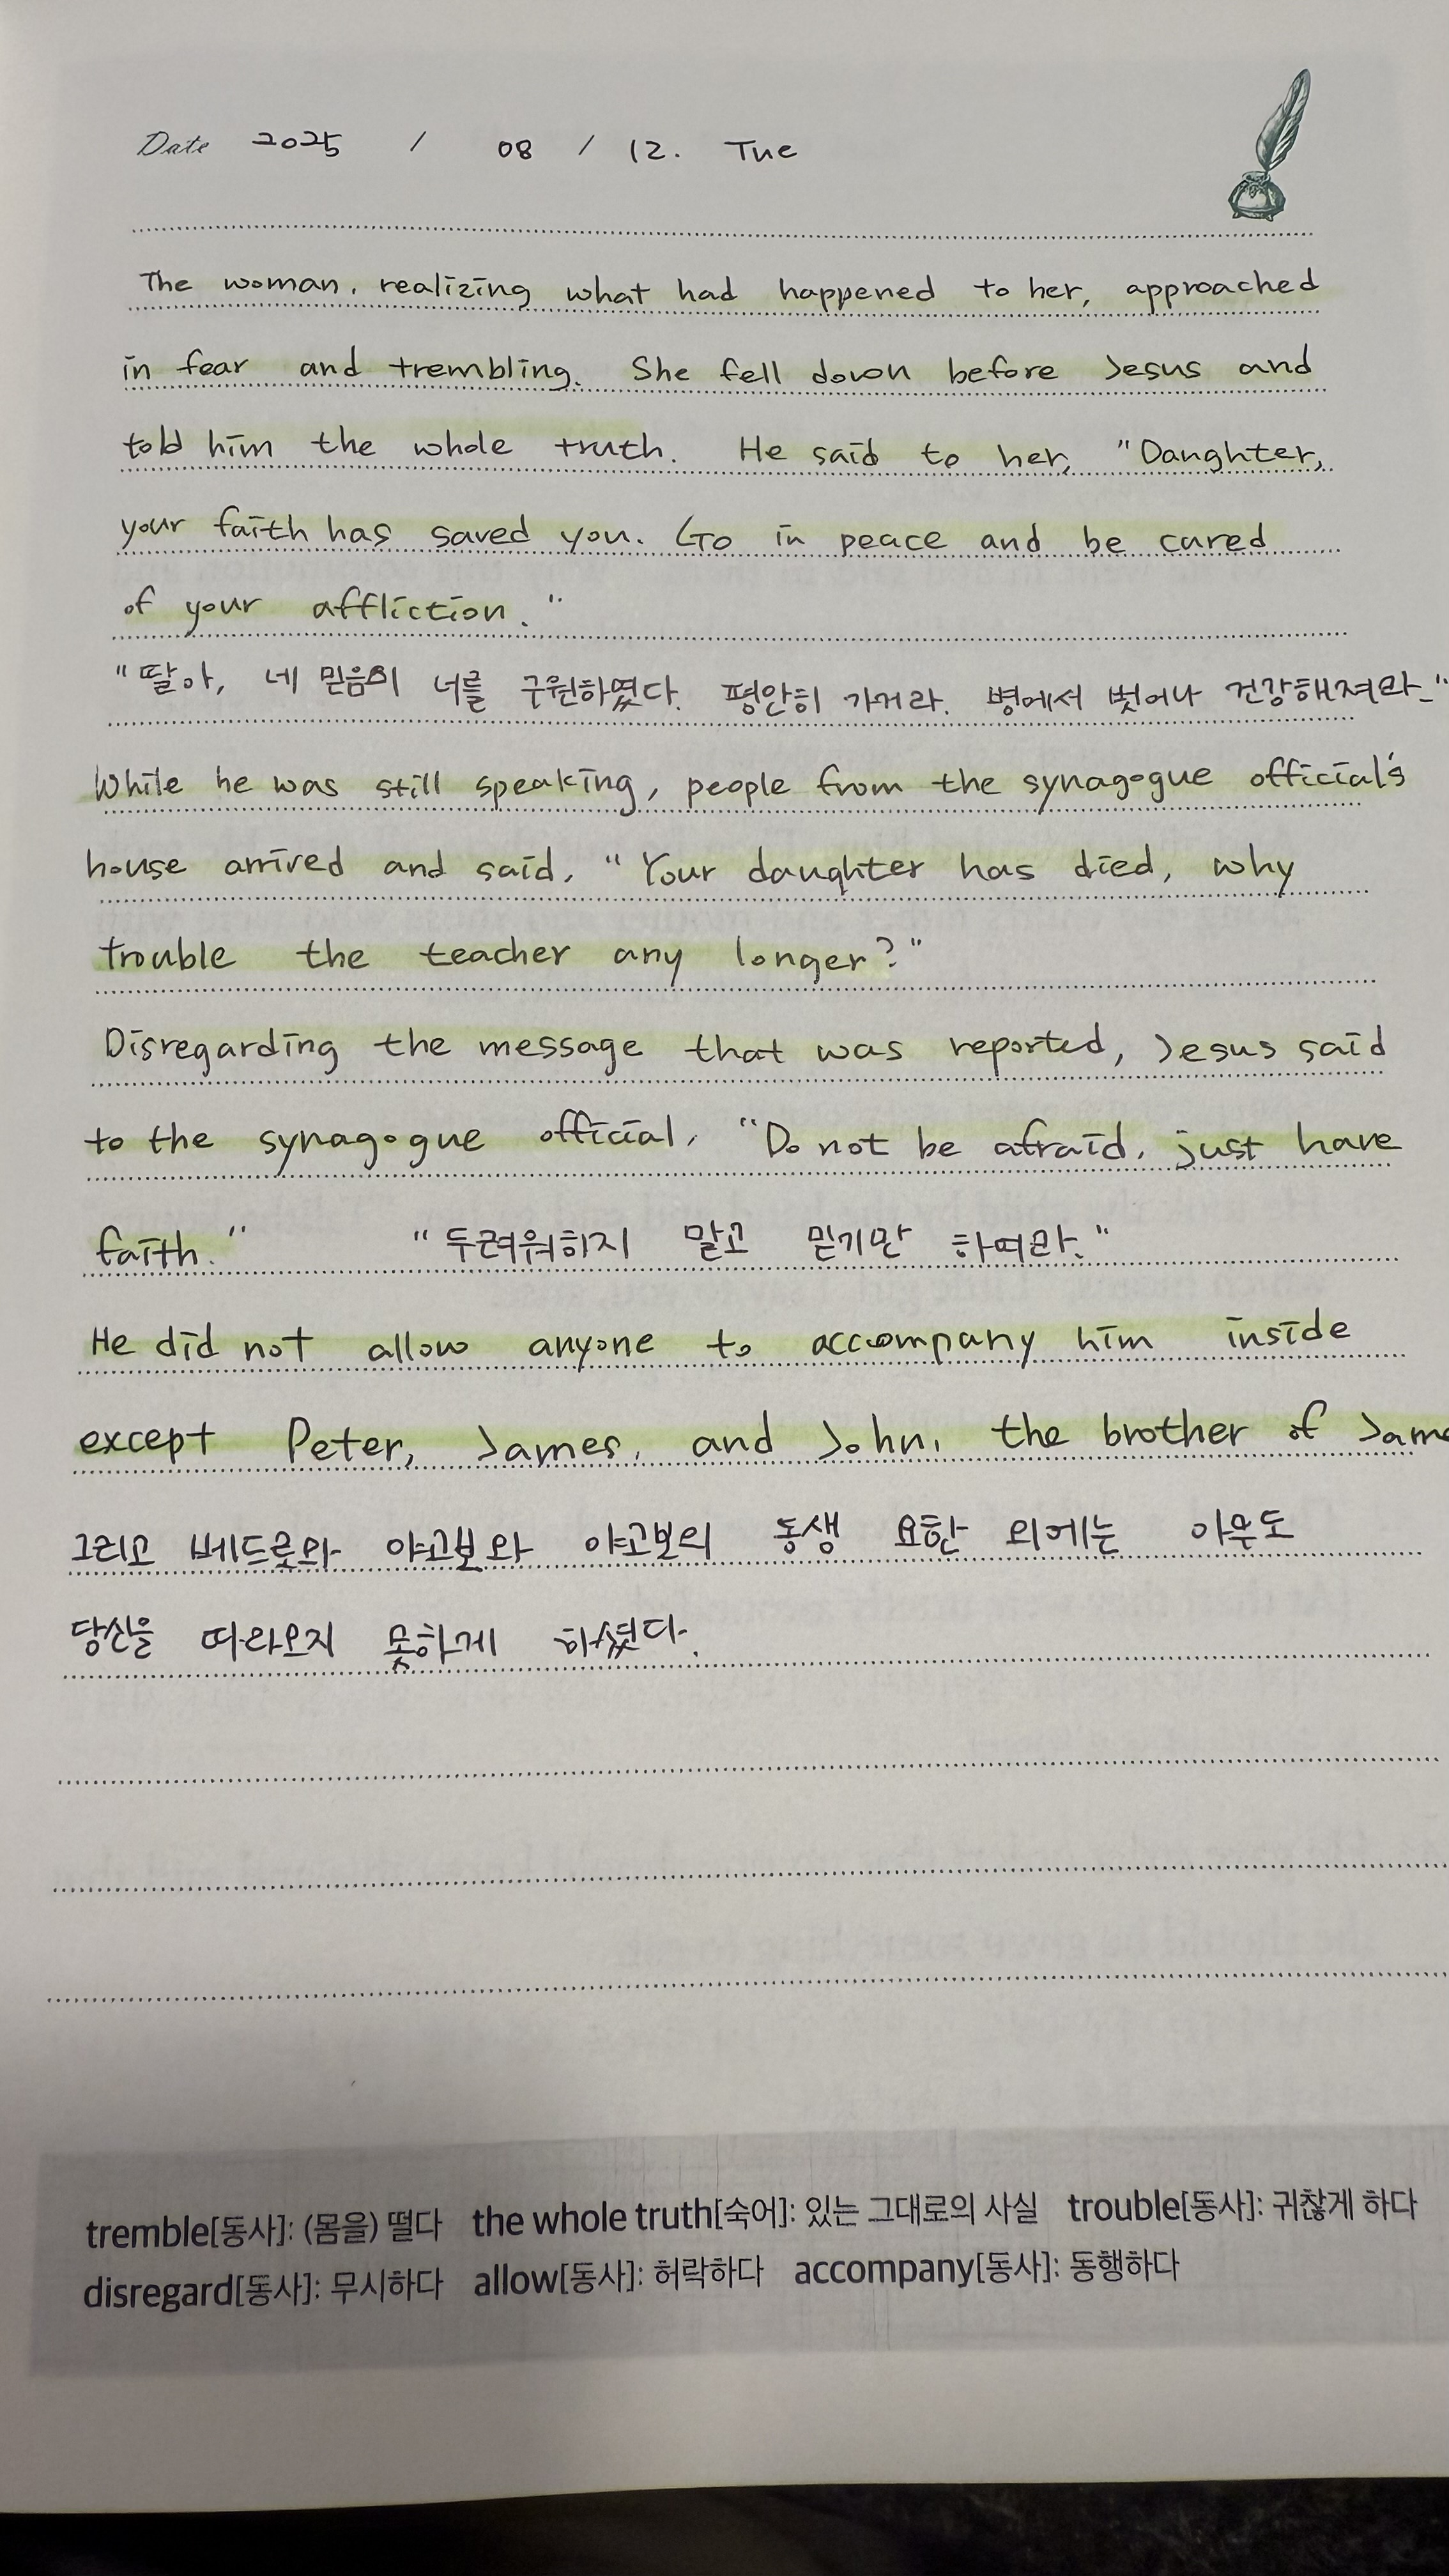 Date 2025 / 08 / 12. Tue
The woman, realizing what had happened to her, approached
in fear and trembling. She fell down before Jesus and
told him the whole truth. He said to her, "Daughter,
your faith has saved you. Go in peace and be cured
of your affliction."
"딸아, 네 믿음이 너를 구원하였다. 평안히 가거라. 병에서 벗어나 건강해져라."
While he was still speaking, people from the synagogue official's
house arrived and said, "Your daughter has died, why
trouble the teacher any longer?"
Disregarding the message that was reported, Jesus said
to the synagogue official, "Do not be afraid, just have
faith." "두려워하지 말고 믿기만 하여라."
He did not allow anyone to accompany him inside
except Peter, James, and John, the brother of Jame
그리고 베드로와 야고보와 야고보의 동생 요한 외에는 아무도
당신을 따라오지 못하게 하셨다.
tremble[동사]: (몸을) 떨다 the whole truth[숙어]: 있는 그대로의 사실 trouble[동사]: 귀찮게 하다
disregard[동사]: 무시하다 allow[동사]: 허락하다 accompany[동사]: 동행하다